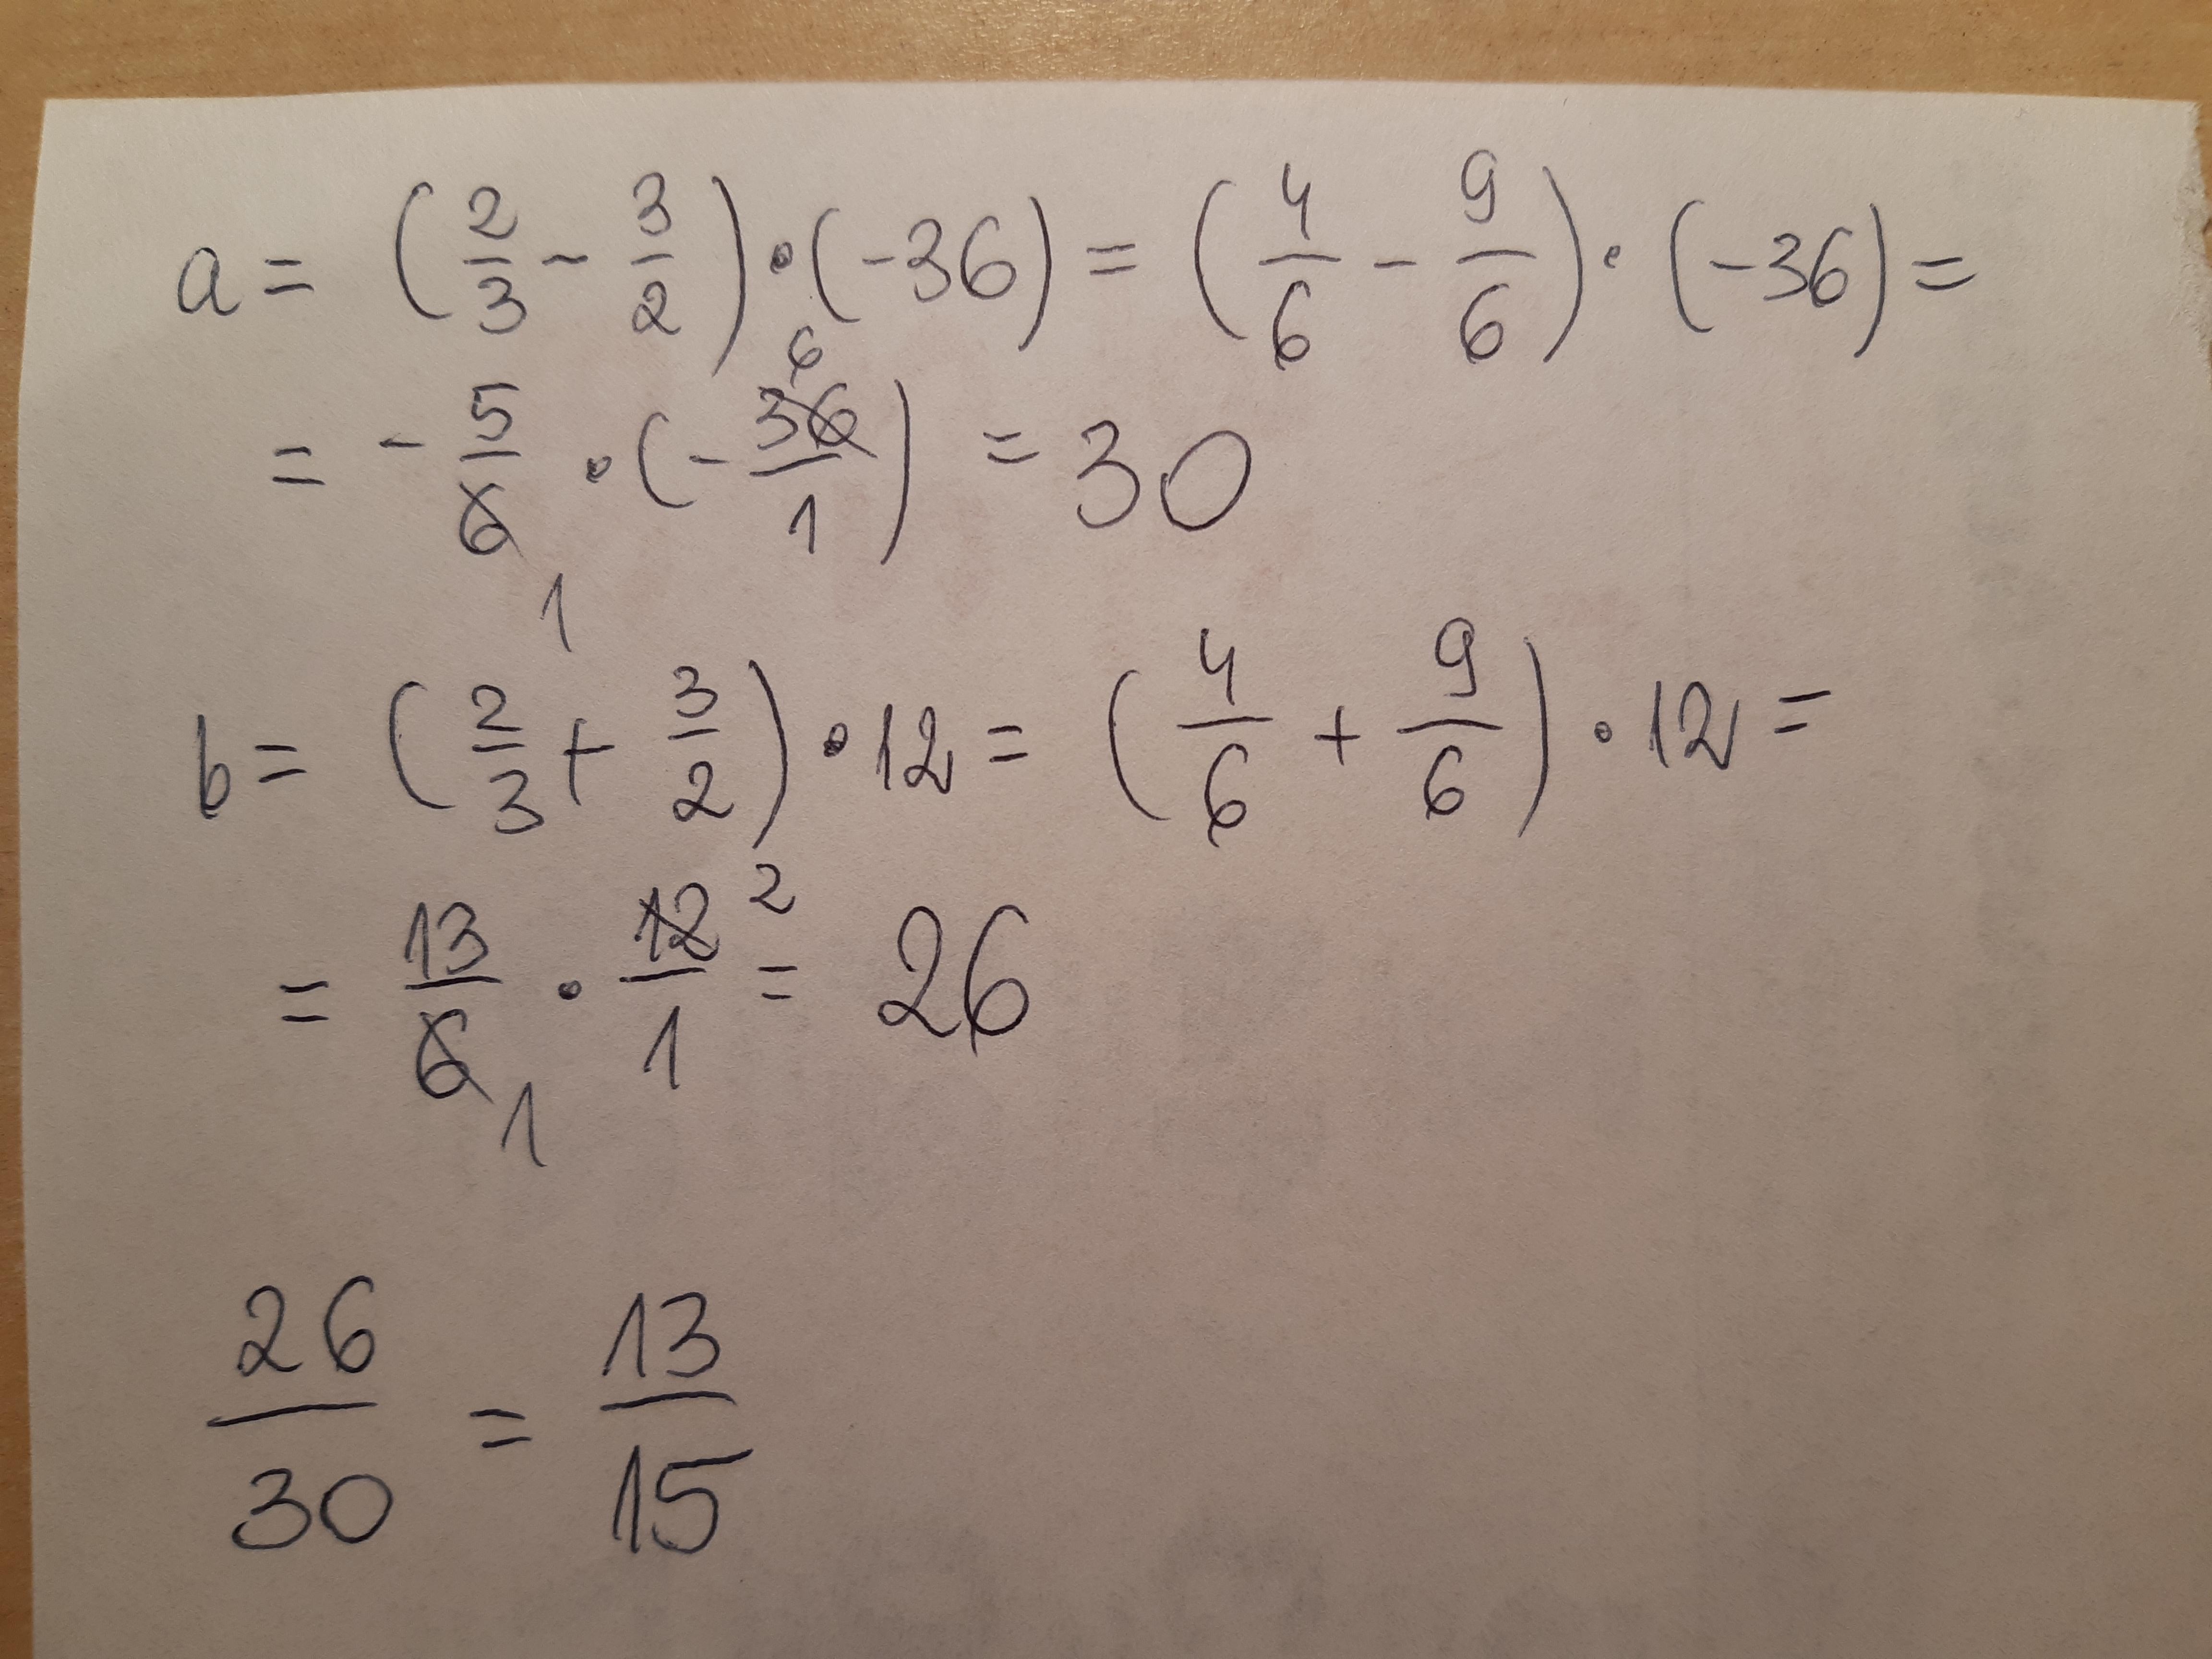 a = (2/3 - 3/2) · (-36) = (4/6 - 9/6) · (-36) =
6
= - 5/6 · (- 36/1) = 30
1
b = (2/3 + 3/2) · 12 = (4/6 + 9/6) · 12 =
2
= 13/6 · 12/1 = 26
1
26/30 = 13/15